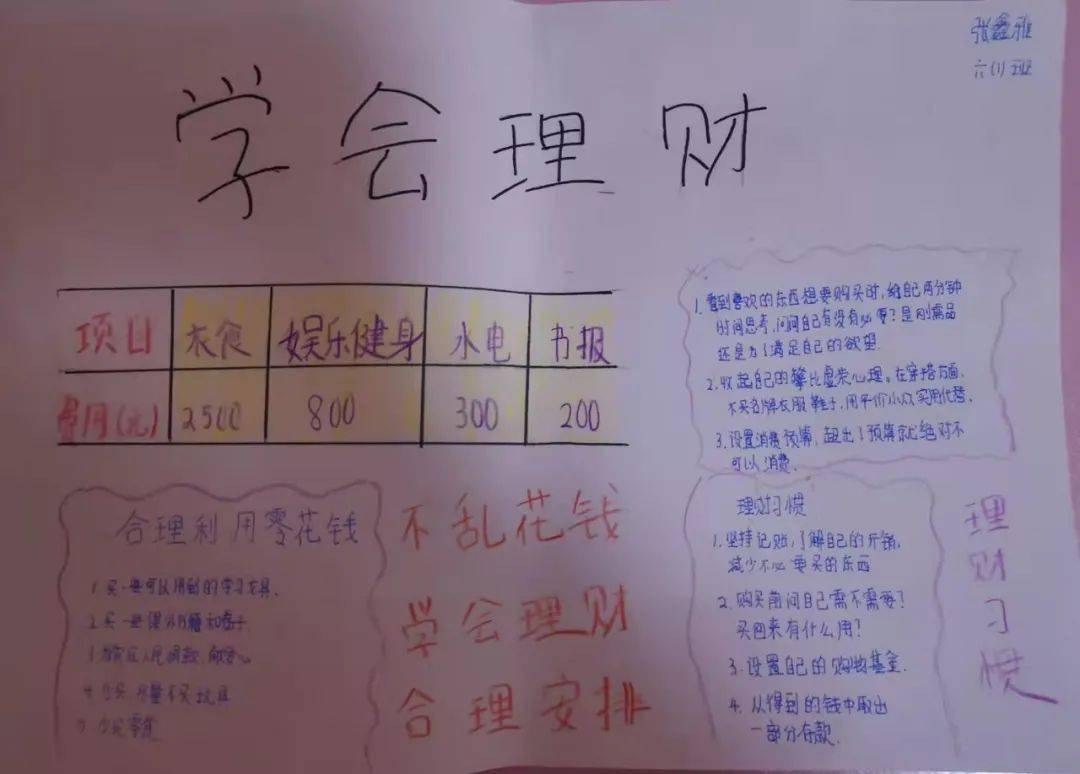 张鑫雅
六(1)班
学会理财
项目 衣食 娱乐健身 水电 书报
费用(元) 2500 800 300 200
1.看到喜欢的东西想要购买时,给自己两分钟
时间思考,问问自己有没有必要?是刚需品
还是为了满足自己的欲望.
2.收起自己的攀比虚荣心理。在穿搭方面,
不买名牌衣服鞋子,用平价小众实用代替.
3.设置消费预算,超出了预算就绝对不
可以消费.
合理利用零花钱
1.买一些可以用到的学习文具.
2.买一些课外书籍和卷子
4.少买、尽量不买玩具
5.少买零食
不乱花钱
学会理财
合理安排
理财习惯
1.坚持记账,了解自己的开销,
减少不必要买的东西
2.购买前问自己需不需要?
买回来有什么用?
3.设置自己的购物基金.
4.从得到的钱中取出
一部分存款.
理
财
习
惯